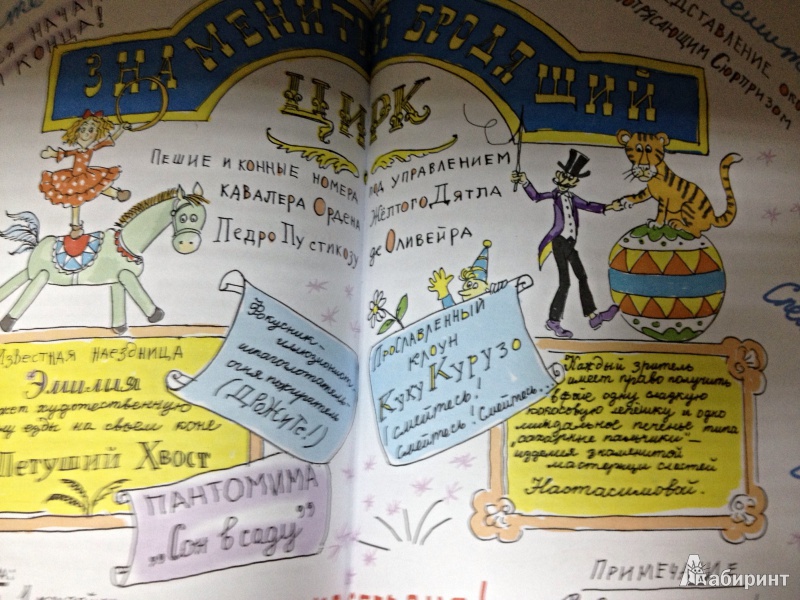 НАЧАЛ
КОНЦА!
ПРЕДСТАВЛЕНИЕ
ПОТРЯСАЮЩИМ СЮРПРИЗОМ
ЗНАМЕНИТЫЙ БРОДЯЩИЙ
ЦИРК
ПЕШИЕ И КОННЫЕ НОМЕРА ПОД УПРАВЛЕНИЕМ
КАВАЛЕРА ОРДЕНА ЖЁЛТОГО ДЯТЛА
ПЕДРО ПУСТИКОЗУ ДЕ ОЛИВЕЙРА
ИЗВЕСТНАЯ НАЕЗДНИЦА
ЭМИЛИЯ
художественную
езды на своём коне
ПЕТУШИЙ ХВОСТ
Фокусник-
иллюзионист,
шпагоглотатель-
огня пожиратель
(ДРОЖИТЕ!)
ПРОСЛАВЛЕННЫЙ
КЛОУН
КУКУ КУРУЗО
Смейтесь!
Смейтесь! Смейтесь...
Каждый зритель
имеет право получить
в фойе одну сладкую
кокосовую лепёшку и одно
миндальное печенье типа
"сахарные пальчики"-
изделия знаменитой
мастерицы сластей
Настасимовой.
ПАНТОМИМА
„Сон в саду"
ПРИМЕЧАНИЕ
Лабиринт